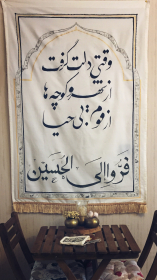 وقتی دلت گرفت
از شهر و کوچه ها
از قوم بی حیا
فَرّوا اِلَی الحُسَین